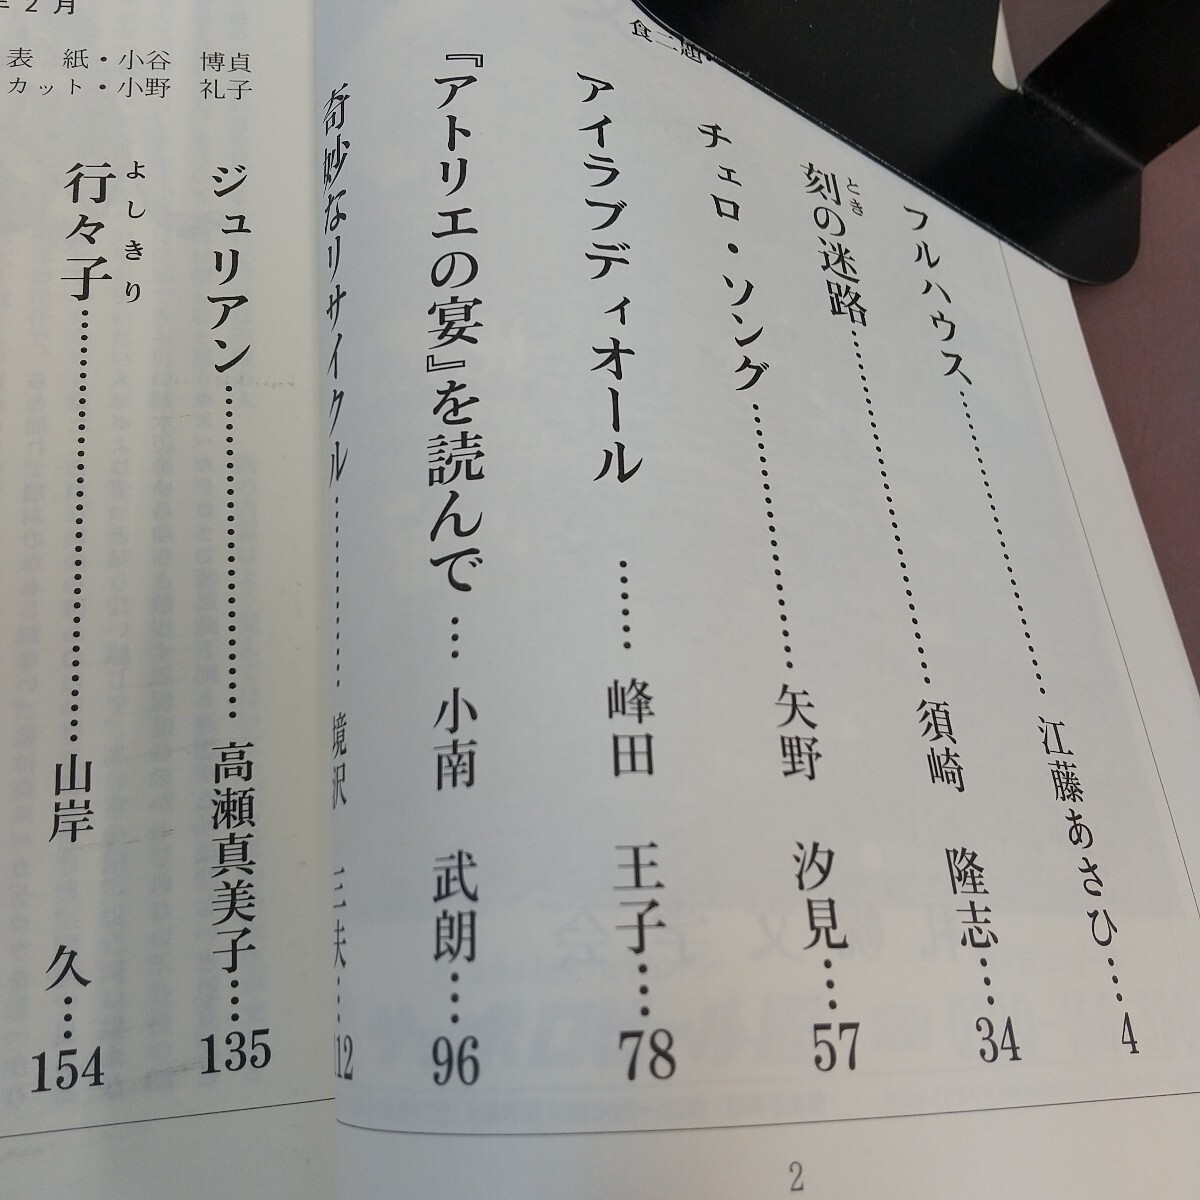 フルハウス……江藤あさひ…4
刻の迷路……須崎 隆志…34
とき
チェロ・ソング……矢野 汐見…57
アイラブディオール……峰田 王子…78
『アトリエの宴』を読んで…小南 武朗…96
奇妙なリサイクル……境沢 三夫…112
2
2月
表 紙・小谷 博貞
カット・小野 礼子
ジュリアン……高瀬真美子…135
行々子……山岸 久…154
よしきり